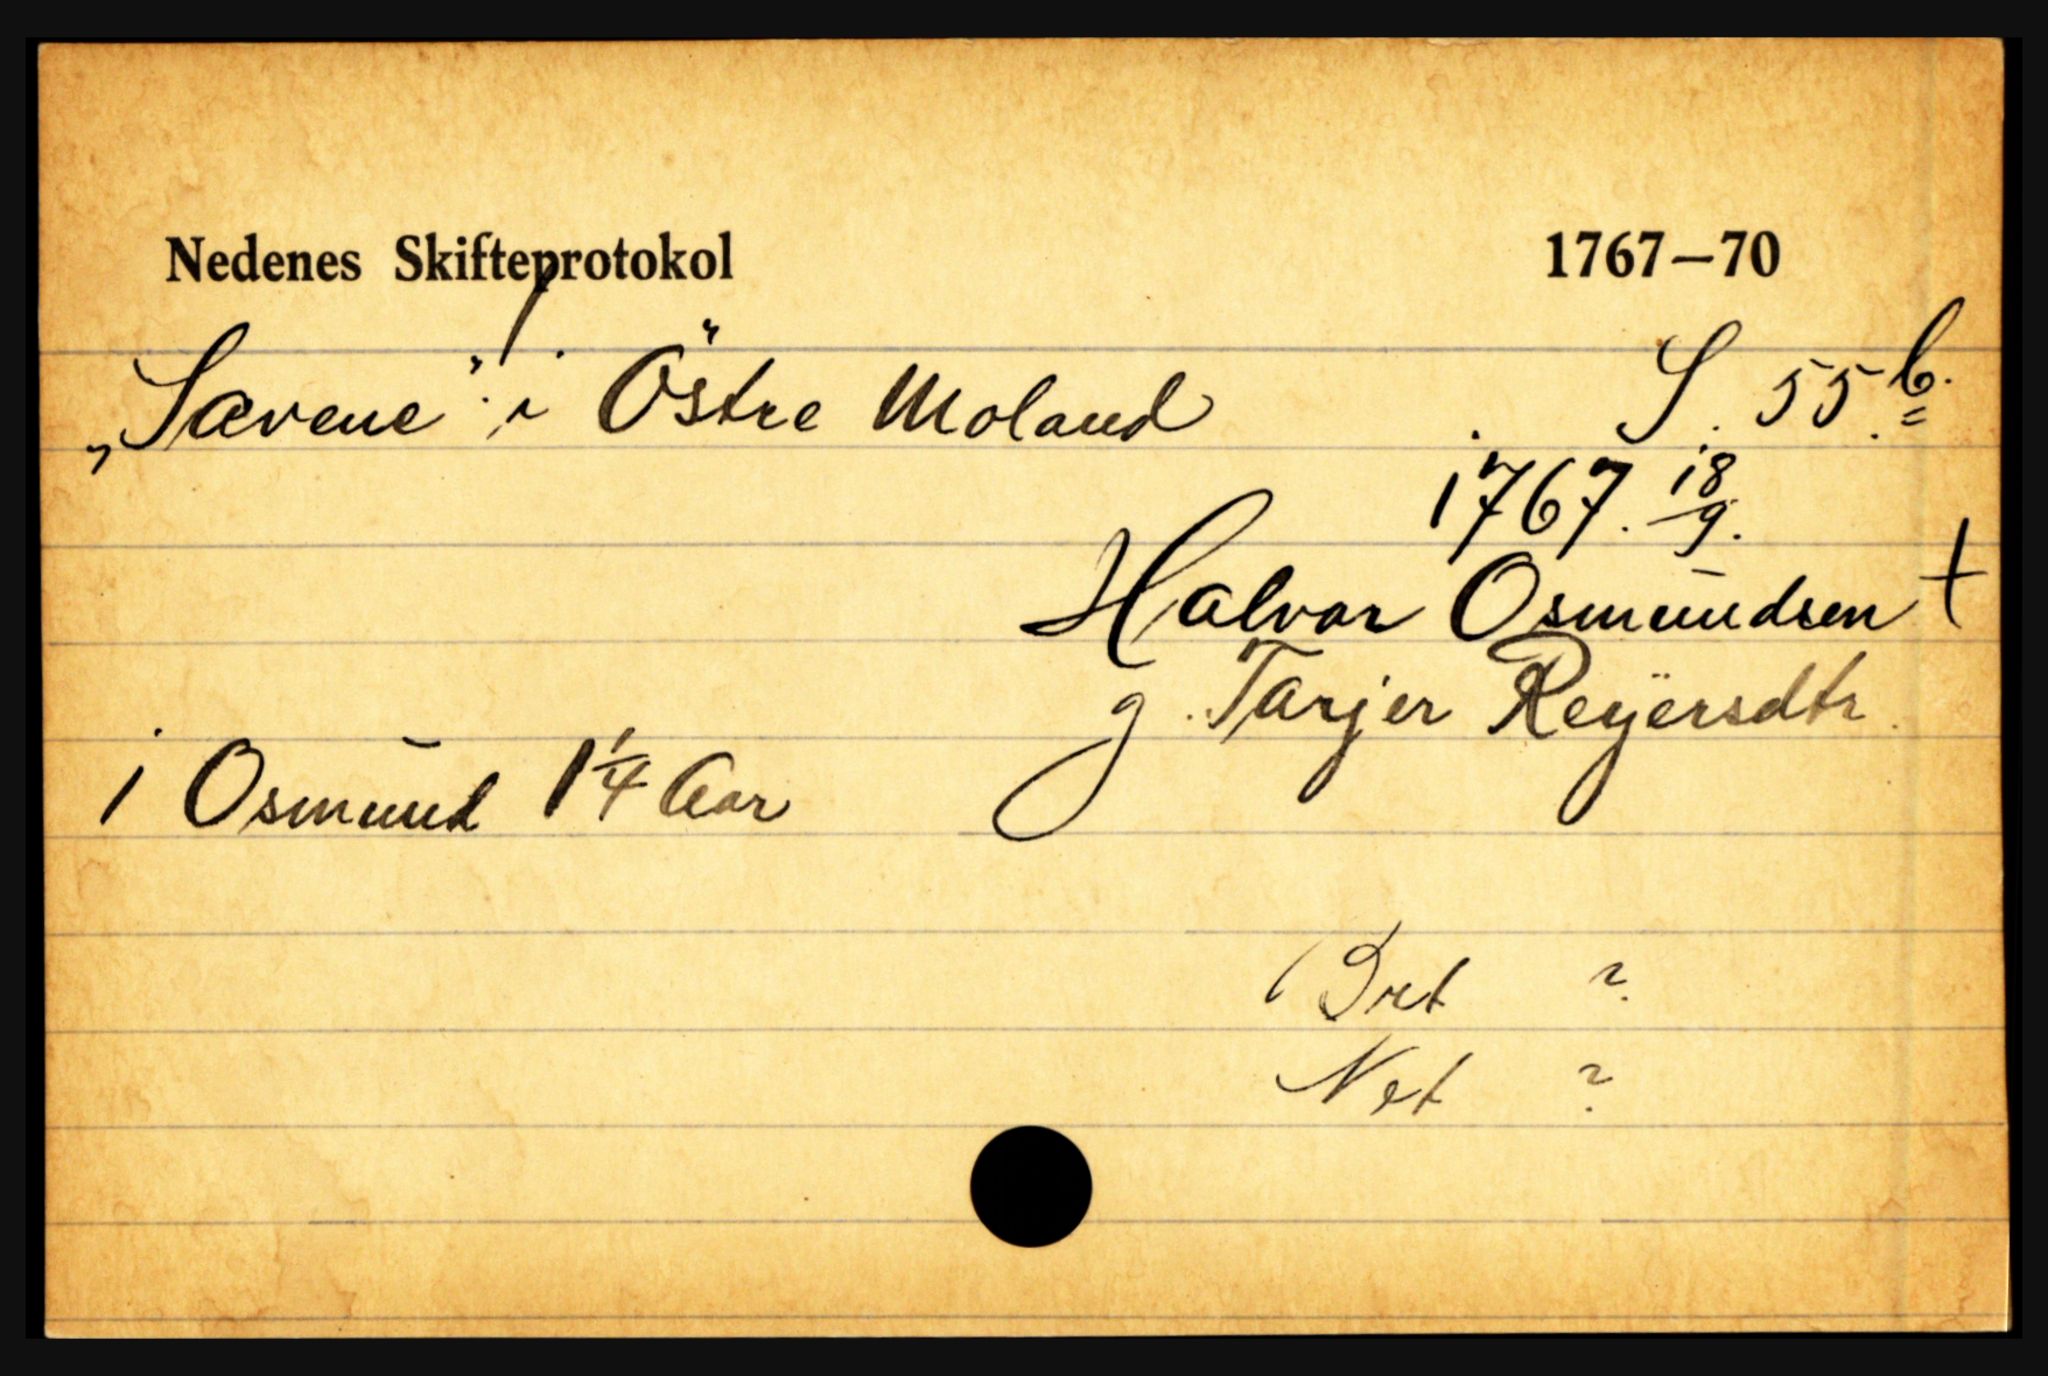 Nedenes Skifteprotokol 1767–70
„Sævene" i Östre Moland S. 55.b.
1767. 18/9.
Halvor Osmundsen †
g. Tarjer Reÿersdtr.
1 Osmund 1 1/4 Aar
Brt ?
Net ?